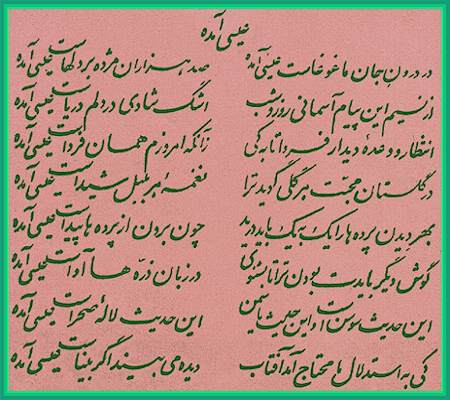 عیسی آمده
در درون جان ما غوغاست عیسی آمده صد هزاران مژده بر دلهاست عیسی آمده
از نسیم این پیام آسمانی روز و شب اشک شادی در دلم دریاست عیسی آمده
انتظار و وعدهٔ دیدار فردا تا به کی زآنکه امروزم همان فرداست عیسی آمده
در گلستان محبت هر گلی گوید ترا نغمهٔ هر بلبل شیداست عیسی آمده
بهر دیدن پرده ها را یک به یک باید درید چون برون از پرده ها پیداست عیسی آمده
گوش دیگر بایدت بودن ترا تا بشنوی در زبان ذرّه ها آواست عیسی آمده
این حدیث سوسن است و این حدیث یاسمن این حدیث لالهٔ صحراست عیسی آمده
کی به استدلال ها محتاج آمد آفتاب دیده می بیند اگر بیناست عیسی آمده